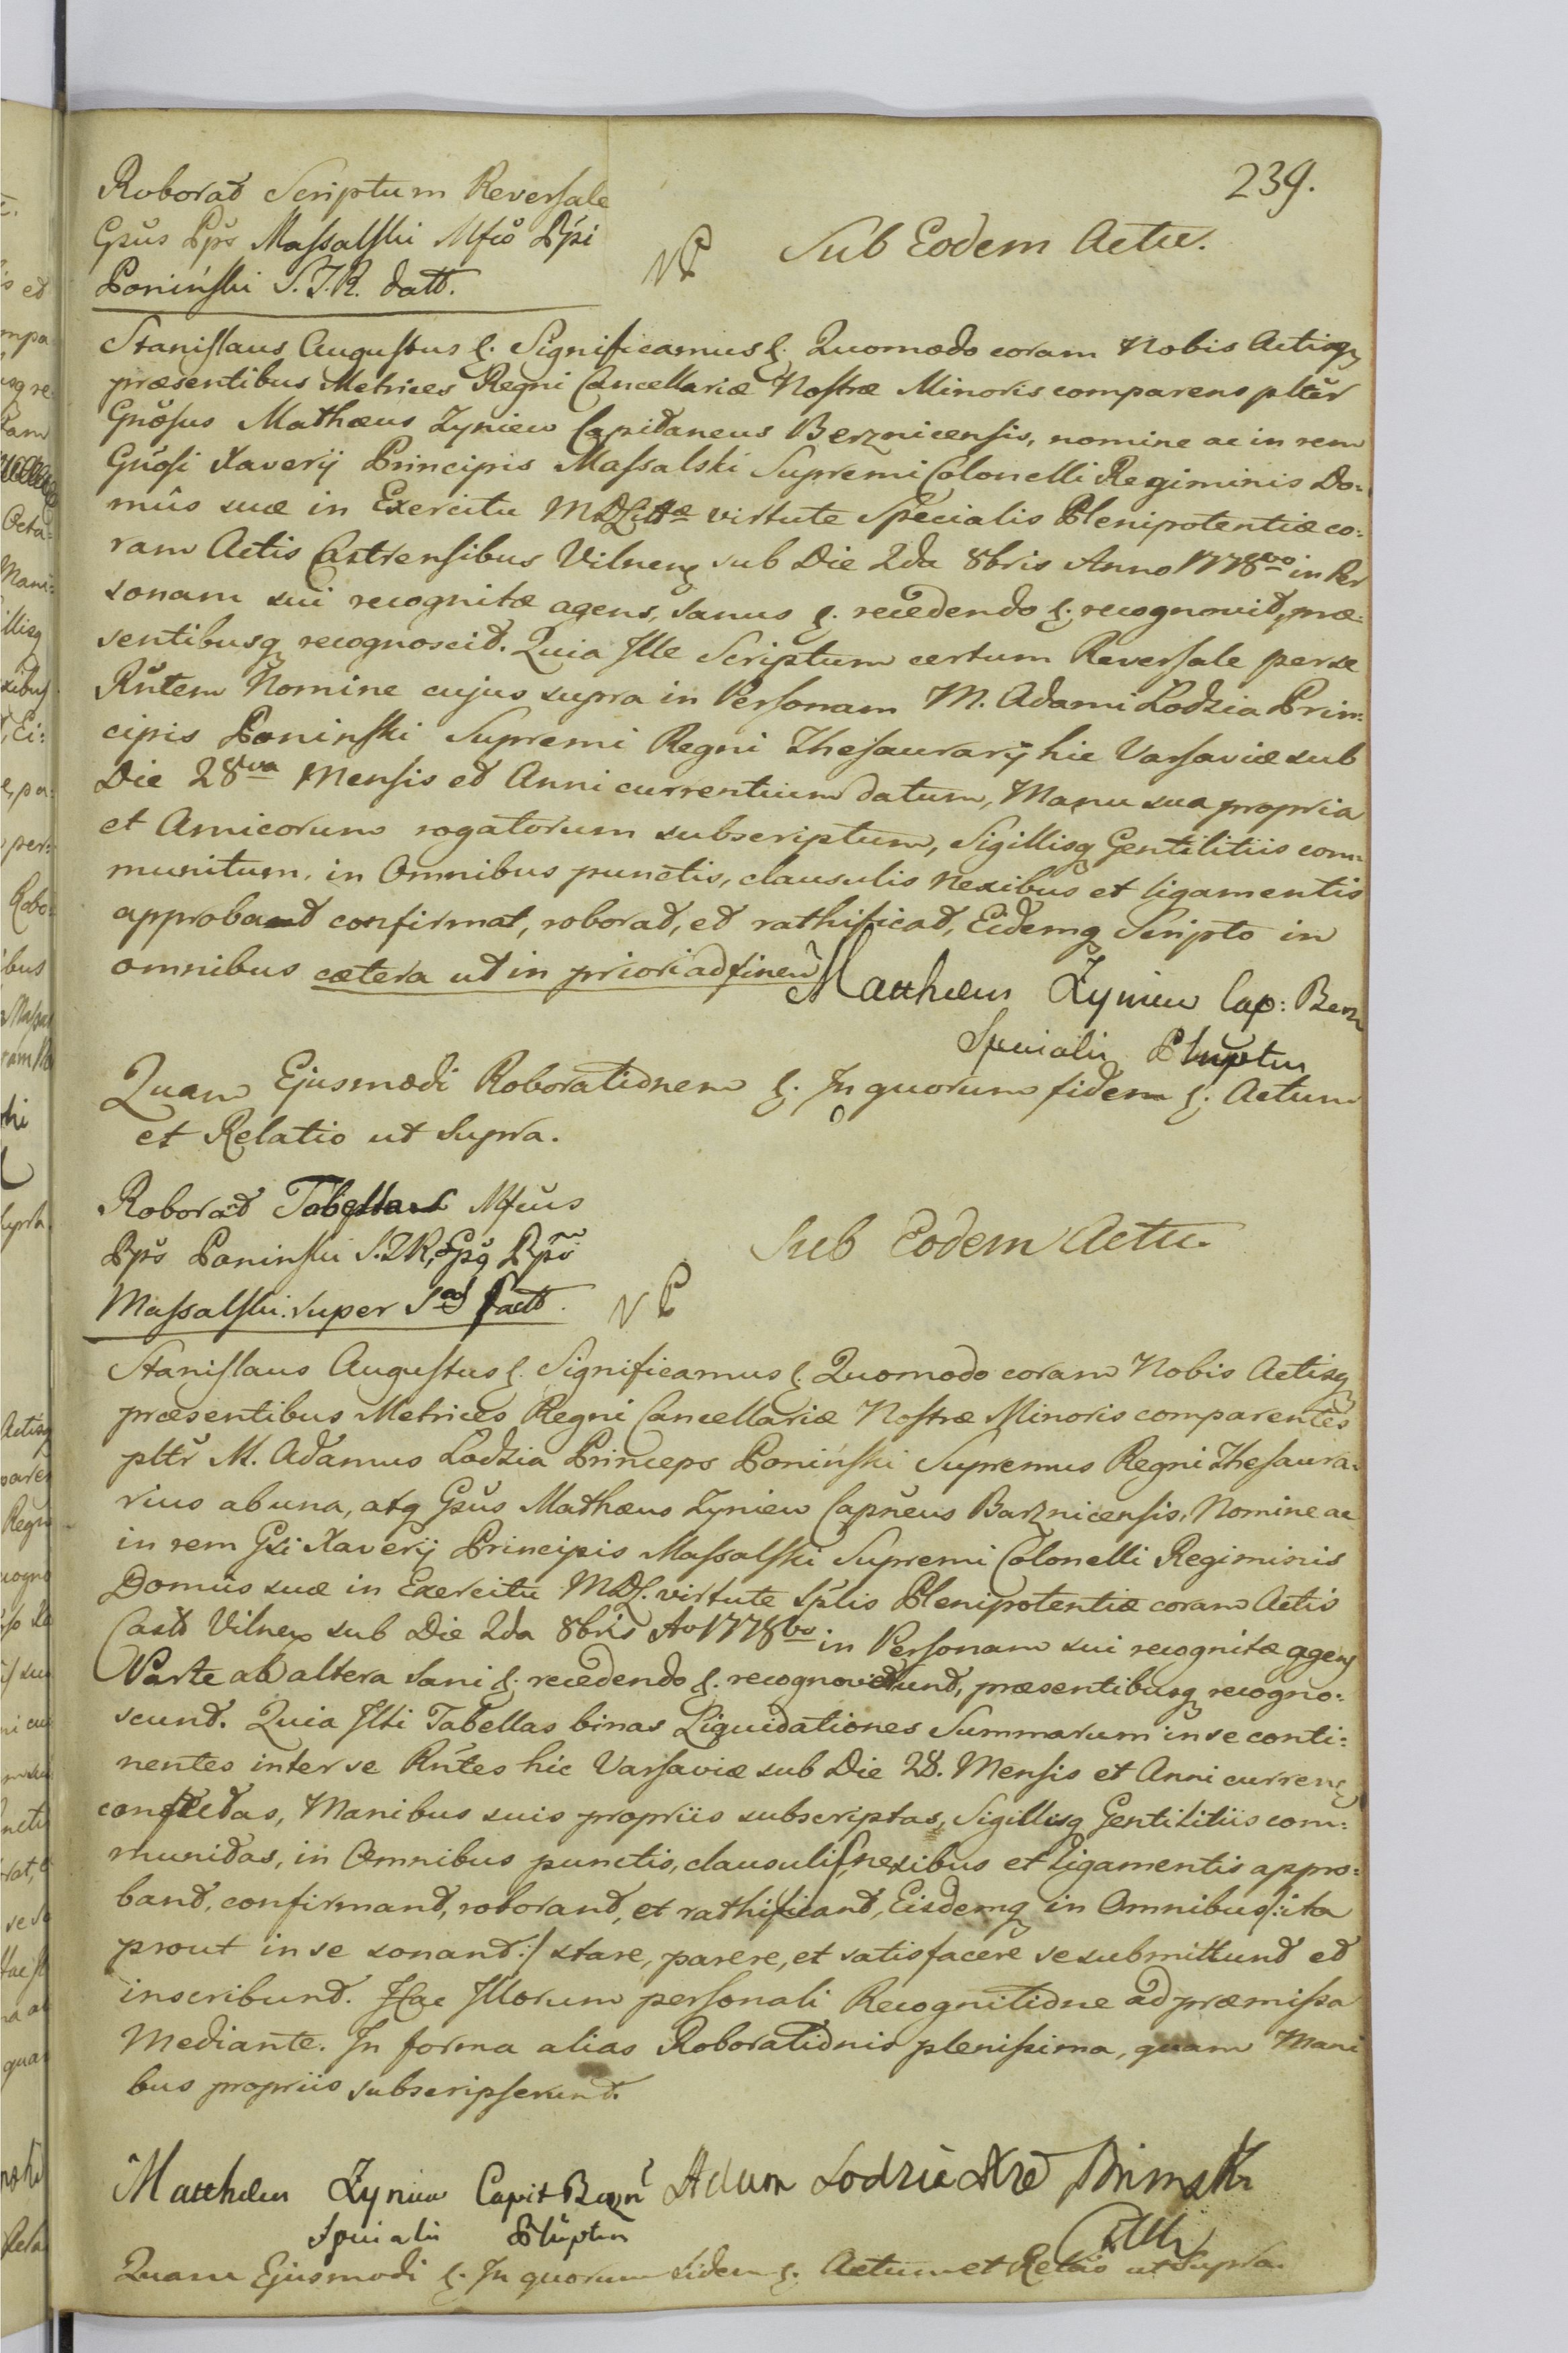 239.
Roborat Scriptum Reversale
Gsus Pps Massalski Mfco Ppi
Poniński S.T.R. datt.
NP
Sub Eodem Actu.
Stanislaus Augustus &. Significamus &. Quomodo coram Nobis Actisq
præsentibus Metrices Regni Cancellariæ Nostræ Minoris comparens pltĕr
Gnŏsus Mathæus Zyniew Capitaneus Berznicensis, nomine ac in rem
Gnŏsi Xaverij Principis Massalski Supremi Colonelli Regiminis Do:
mûs suæ in Exercitu MDLittæ virtute Specialis Plenipotentiæ co:
ram Actis Castrensibus Vilnen sub Die 2da 8bris Anno 1778vo in Per
sonam sui recognitæ agens, sanus &. recedendo &. recognovit, præ:
sentibusq recognoscit. Quia Ille Scriptum certum Reversale per se
Rŭtem Nomine cujus supra in Personam M. Adami Lodzia Prin:
cipis Poninski Supremi Regni Thesaurarij hic Varsaviæ sub
Die 28va Mensis et Anni currentium datum, Manu sua propria
et Amicorum rogatorum subscriptum, Sigillisq Gentilitiis com:
munitum, in Omnibus punctis, clausulis nexibus et ligamentis
approbat confirmat, roborat, et rathificat, Eidemq Scripto in
omnibus cætera ut in priori ad finem
Matthæus Zyniew Cap: Berz
Specialis Plnptus
Quam Ejusmodi Roborationem &. In quorum fidem &. Actum
et Relatio ut supra.
Roborat Tabellas Mfcus
Pps Poninski S.T.R. Gsq Pps
Massalski super Sas factt.
NP
Sub Eodem Actu.
Stanislaus Augustus &. Significamus &. Quomodo coram Nobis Actisq
præsentibus Metrices Regni Cancellariæ Nostræ Minoris comparentes
pltr M. Adamus Lodzia Princeps Poniński Supremus Regni Thesaura:
rius ab una, atq Gsus Mathæus Zyniew Capneus Barznicensis, Nomine ac
in rem Gsi Xaverij Principis Massalski Supremi Colonelli Regiminis
Domûs suæ in Exercitu MDL. virtute Splis Plenipotentiæ coram Actis
Castr Vilnen sub Die 2da 8bris Ao 1778vo in Personam sui recognitæ agens
Parte ab altera sani &. recedendo &. recognoverunt, præsentibusq recogno:
scunt. Quia Illi Tabellas binas Liquidationes Summarum in se conti:
nentes inter se Rntes hic Varsaviæ sub Die 28. Mensis et Anni curren
confectas, Manibus suis propriis subscriptas, Sigillisq Gentilitiis com:
munitas, in Omnibus punctis, clausulis, nexibus et ligamentis appro:
bant, confirmant, roborant, et rathificant, Eisdemq in Omnibus /:ita
prout in se sonant:/ stare, parere, et satisfacere se submittunt et
inscribunt. Hac Illorum personali Recognitione ad præmissa
Mediante. In forma alias Roborationis plenissima, quam Mani
bus propriis subscripserunt.
Matthæus Zyniew Capit Berzn Adam Lodzia Poninski
Specialis Plnptus
Quam Ejusmodi &. In quorum fidem &. Actum et Relatio ut Supra.